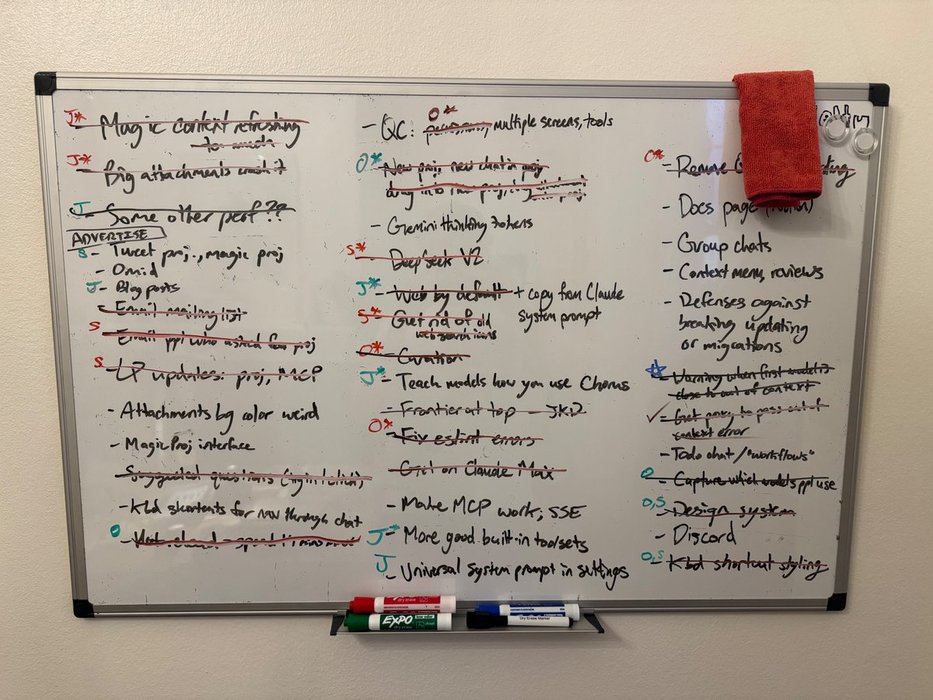 J* Magic content refreshing
J* - Big attachments crash it
J - Some other perf??
ADVERTISE
S - Tweet proj., magic proj
- Omid
J - Blog posts
- Email mailing list
S - Email ppl who asked for proj
S - LP updates: proj, MCP
- Attachments bg color weird
- Magic Proj interface
- Suggested questions
- Kbd shortcuts for nav through chat
O -
- QC: O* multiple screens, tools
O* - New proj, new chat in proj
drag into new proj,
- Gemini thinking tokens
S* - Deepseek V2
J* - Web by default + copy from Claude
system prompt
S* - Get rid of old
web search icons
O* - Curation
J* - Teach models how you use Chorus
- Frontier at top - JKD
O* - Fix eslint errors
- Get on Claude Max
- Make MCP work, SSE
J* - More good built-in toolsets
J - Universal system prompt in settings
O* - Remove
- Docs page
- Group chats
- Context menu, reviews
- Defenses against
breaking updating
or migrations
- Warning when first model is
close to out of context
✓ - Get proxy to pass out of
context error
- Todo chat / "workflows"
O - Capture which models ppl use
O,S - Design system
- Discord
O,S - Kbd shortcut styling
EXPO